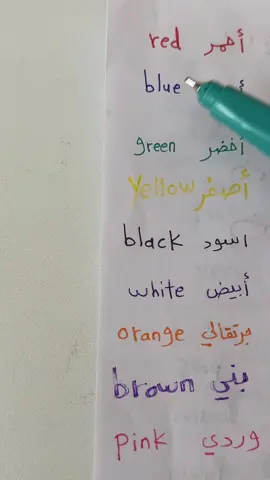 أحمر red
blue
أخضر green
أصفر Yellow
اسود black
أبيض white
برتقالي orange
بني brown
وردي pink